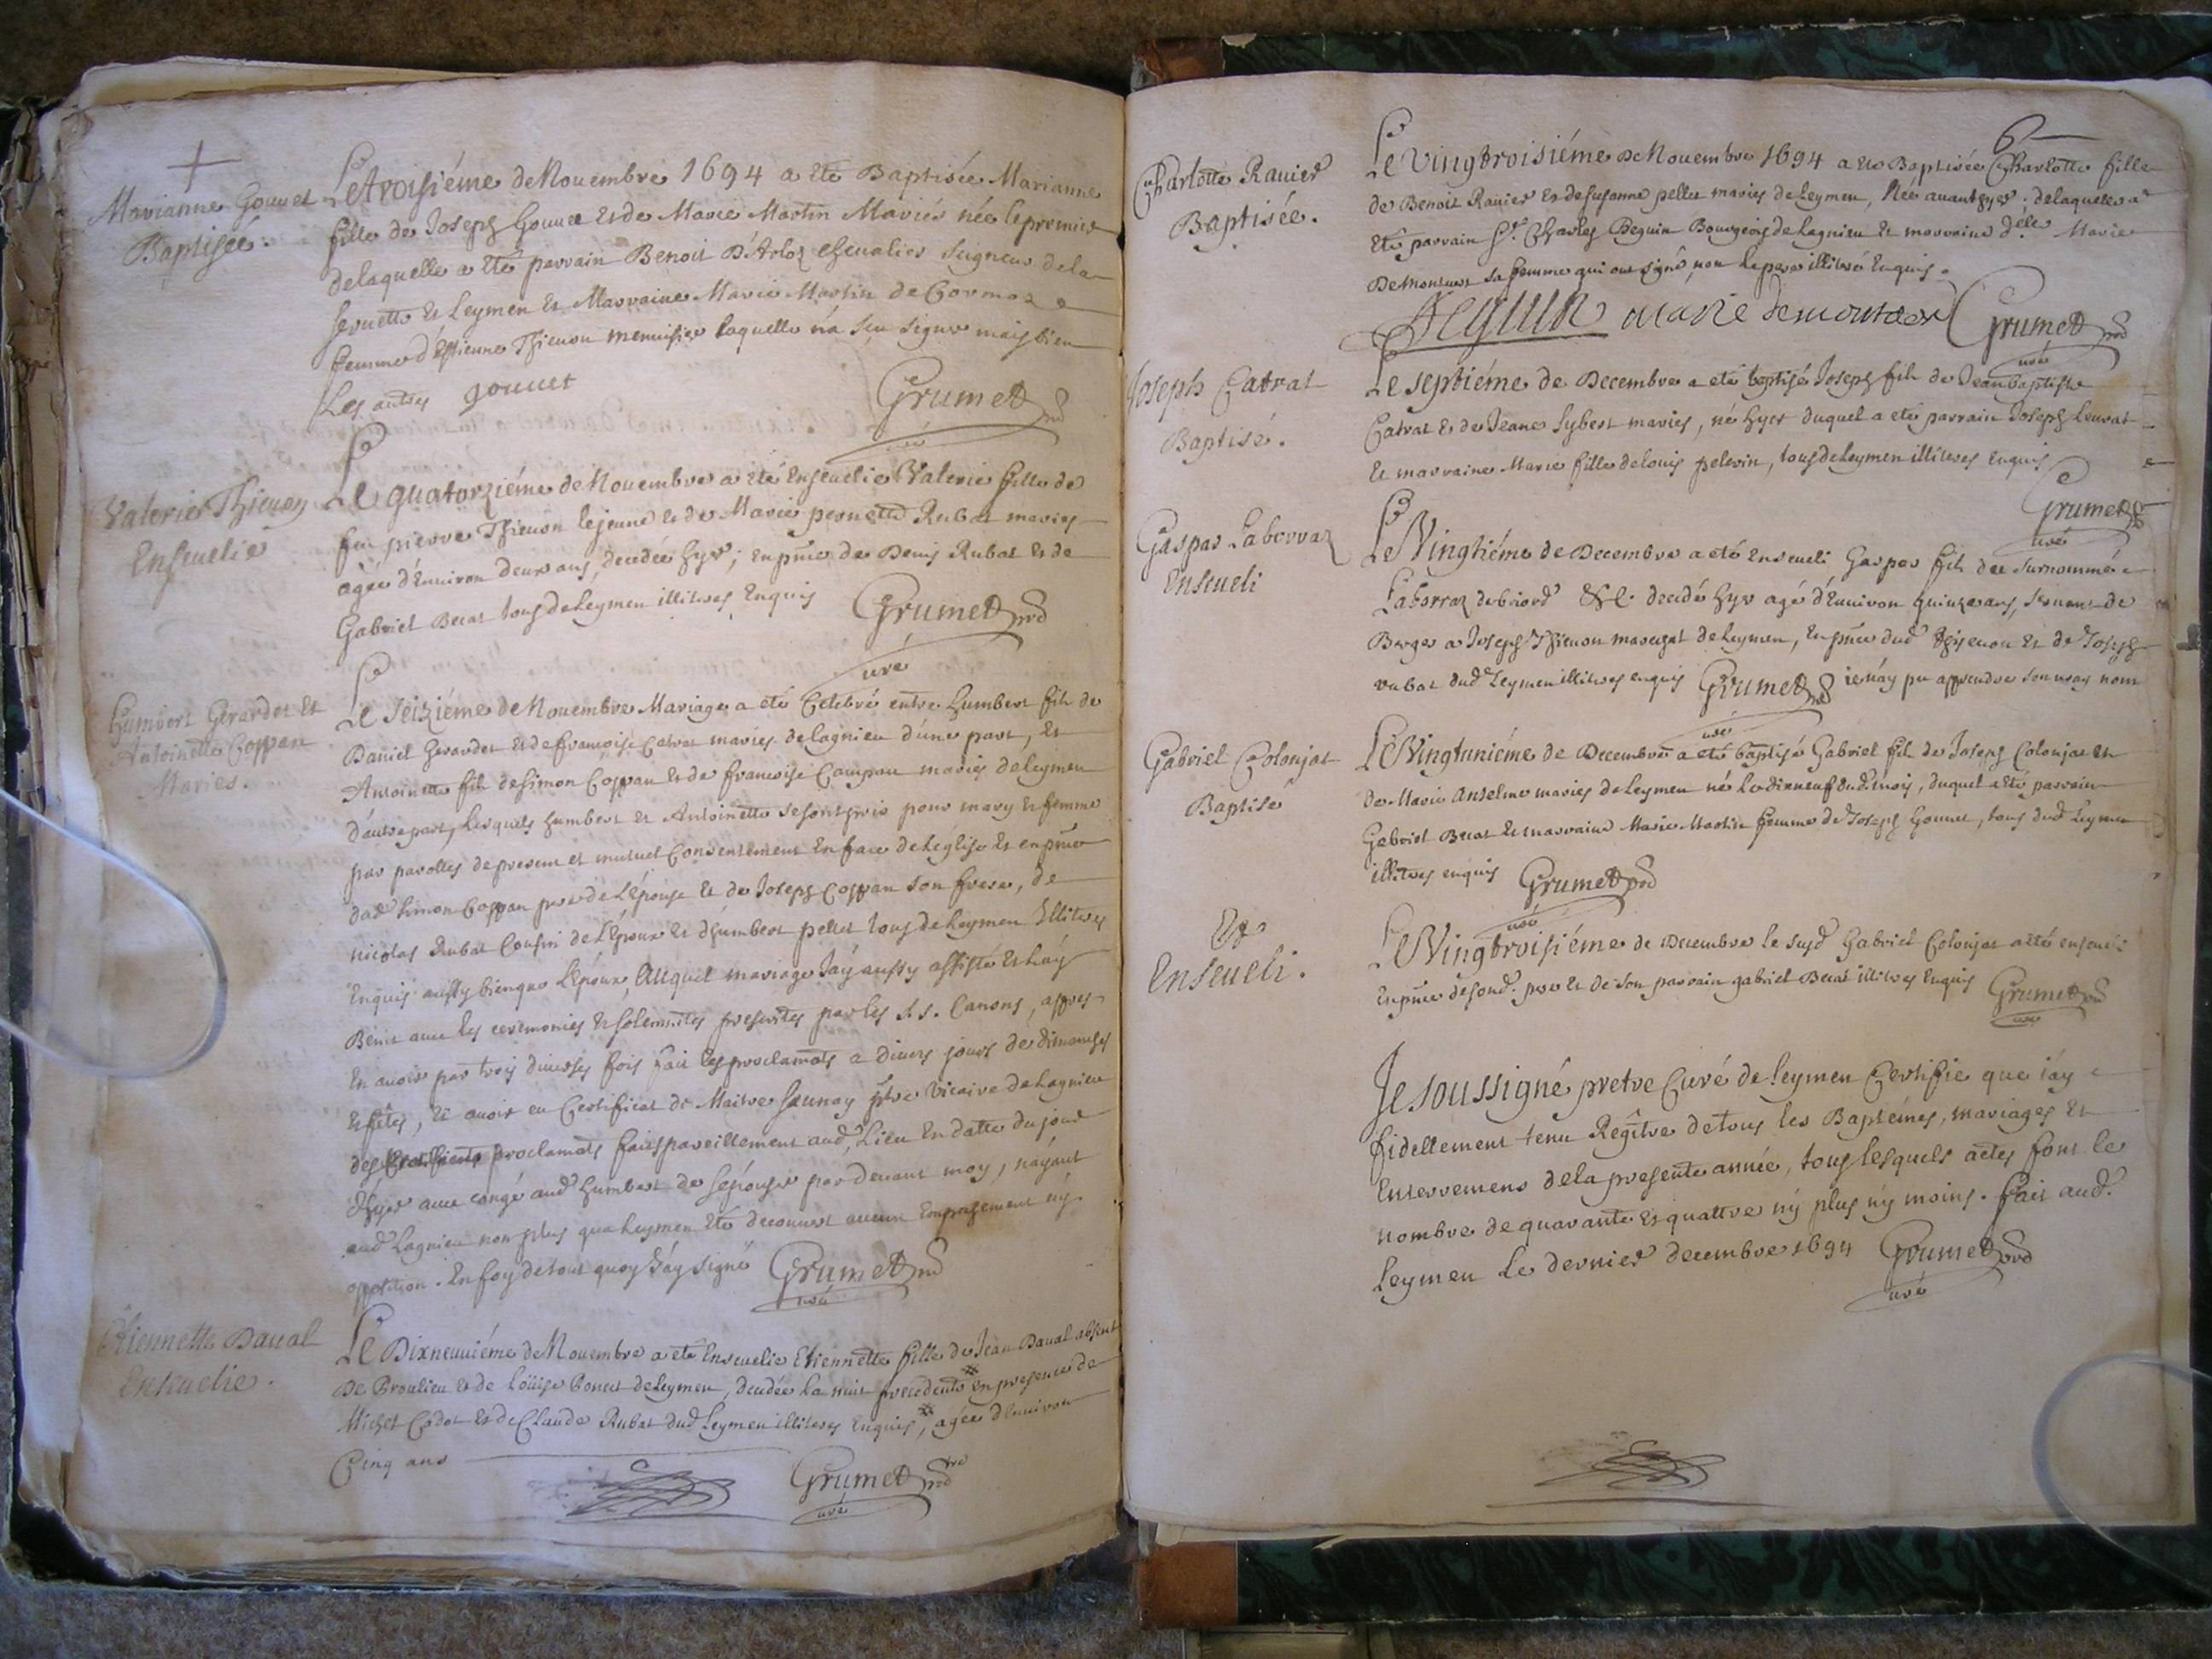 Marianne Gouvet
Baptisée.
Le troisiéme de Nouembre 1694 a eté Baptisée Marianne
fille de Joseph Gouvet et de Marie Martin Mariés née le premier
de laquelle a eté parrain Benoit D'Arloz chevalier Seigneur de la
Seruette et Leymen et Marraine Marie Martin de Cormoz
femme d'Estienne Thieuon menuisier laquelle n'a sçu signer mais bien
Les autres gouuet Grumet
curé
Valerie Thieuon
Enseuelie
Le quatorziéme de Nouembre a eté Enseuelie Valerie fille de
feu pierre Thieuon le jeune et de Marie pernette Rubat maries
agée d'Enuiron deux ans, decedée hyer; En pnce de Denis Rubat et de
Gabriel Berat tous de Leymen illiteres Enquis Grumet
curé
Humbert Girardet Et
Antoinette Coppan
Maries.
Le Seiziéme de Nouembre Mariage a eté Celebré entre humbert fils de
Daniel Girardet et de francoise Catrat maries de lagnieu d'une part, Et
Antoinette fill de Simon Coppan et de francoise Campan maries de Leymen
d'autre part, Lesquels humbert et Antoinette se sont pris pour mary et femme
par parolles de present et mutuel Consentement En face de L'église Et en pnce
dud Simon Coppan pere de L'Epouse et de Joseph Coppan son frere, de
nicolas Rubat Cousin de L'Epoux et d'humbert pellet tous de Leymen Illiteres
Enquis aussy bien que L'époux, Auquel mariage J'aÿ aussy assisté Et L'aÿ
Benit auec les ceremonies et solemnités prescrites par les S.S. Canons, appres
En auoir par trois diuerses fois fait les proclamats a diuers jours de dimanches
et fêtes, et auoir eu Certificat de Maitre Saunay ptre Vicaire de Lagnieu
des proclamats fais pareillement aud Lieu En datte du jour
d'hyer auec congé aud humbert de s'épouser par deuant moy, n'ayant
aud Lagnieu non plus qu'a Leymen Eté decouuert aucun Empeschement nÿ
opposition. En foy de tout quoy J'aÿ signé Grumet
curé
Etiennette Daual
Enseuelie.
Le Dixneuuiéme de Nouembre a eté Enseuelie Etiennette fille de Jean Daual absent
De Proulieu et de Loüise Bonet de Leymen, decedée la nuit precedente en presence de
Michel Cadot et de Claude Rubat dud Leymen illiteres Enquis, agée d'enuiron
Cinq ans Grumet
curé
6
Charlotte Rauier
Baptisée.
Le vingtroisiéme De Nouembre 1694 a eté Baptisée Charlotte fille
de Benoit Rauier et de Susanne pellet maries de Leymen, Née auanthyer. de laquelle a
Eté parrain Sr. Charles Beguin Bourgeois de Lagnieu et marraine d.elle Marie
De Montuert sa femme qui ont signé, non le pere illiteré Enquis.
Beguin marie demontuert Grumet
curé
Joseph Catrat
Baptisé.
Le Septiéme de Decembre a eté baptisé Joseph fils de Jean Baptiste
Catrat et de Jeane Sybert maries, né hyer duquel a eté parrain Joseph Leurat
et marraine Marie fille de Louis pelerin, tous de Leymen illiteres Enquis
Grumet
curé
Gaspar Laborraz
Enseueli
Le Vingtiéme de Decembre a eté Enseueli Gaspar fils de surnommé
Laborraz de briord &c. decedé hyer agé d'Enuiron quinze ans, seruant de
Berger a Joseph Thieuon marengat de Leymen, En pnce dud Thieuon et de Joseph
rubat dud Leymen illiteres enquis Grumet je n'ay pu apprendre son uray nom
curé
Gabriel Colonjat
Baptisé
Le Vingtuniéme de Decembre a eté baptisé Gabriel fils de Joseph Colonjat et
de Marie Anselme maries de Leymen né le dixneuf dud. mois, duquel a Eté parrain
Gabriel Berat et marraine Marie Martin femme de Joseph Gouuet, tous dud Leymen
illiteres enquis Grumet
curé
Et
Enseueli.
Le Vingtroisiéme de Decembre le susd Gabriel Colonjat a eté enseueli
En pnce de sond. pere et de son parrain gabriel Berat illiteres Enquis Grumet
curé
Je soussigné pretre Curé de Leymen Certifie que j'ay
fidellement tenu Regître de tous les Baptémes, mariages et
Enterremens de la presente année, tous lesquels actes font le
nombre de quarante et quattre nÿ plus nÿ moins. fait aud.
Leymen Le dernier decembre 1694 Grumet
curé